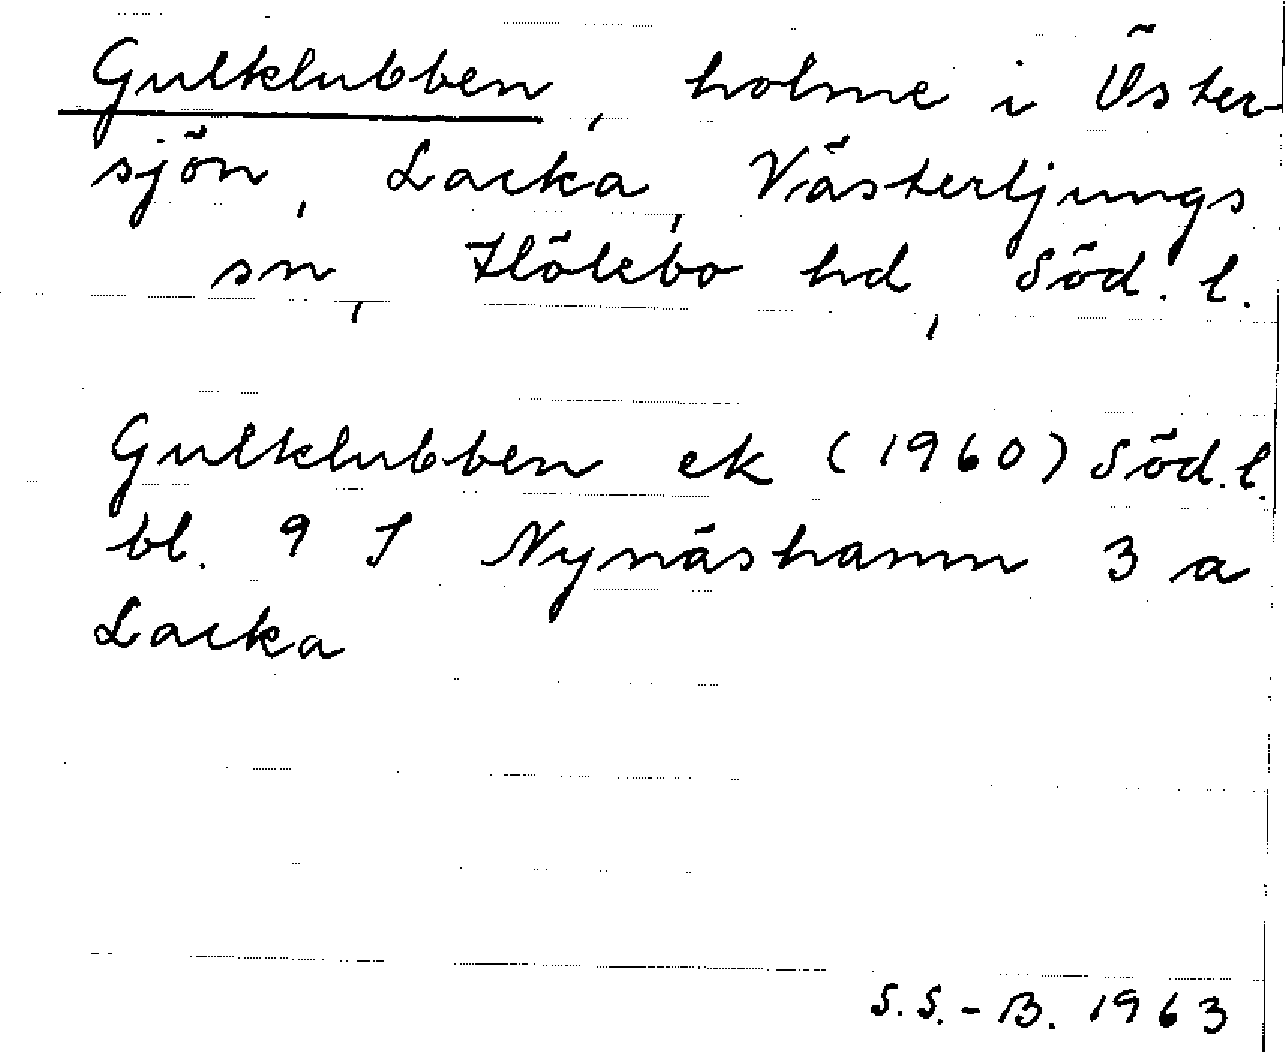 Gulklubben, holme i Öster-
sjön, Lacka, Västerljungs
sn, Hölebo hd, Söd. l.
Gulklubben ek (1960) Söd. l.
bl. 9 I Nynäshamn 3 a
Lacka
S.S.-B. 1963